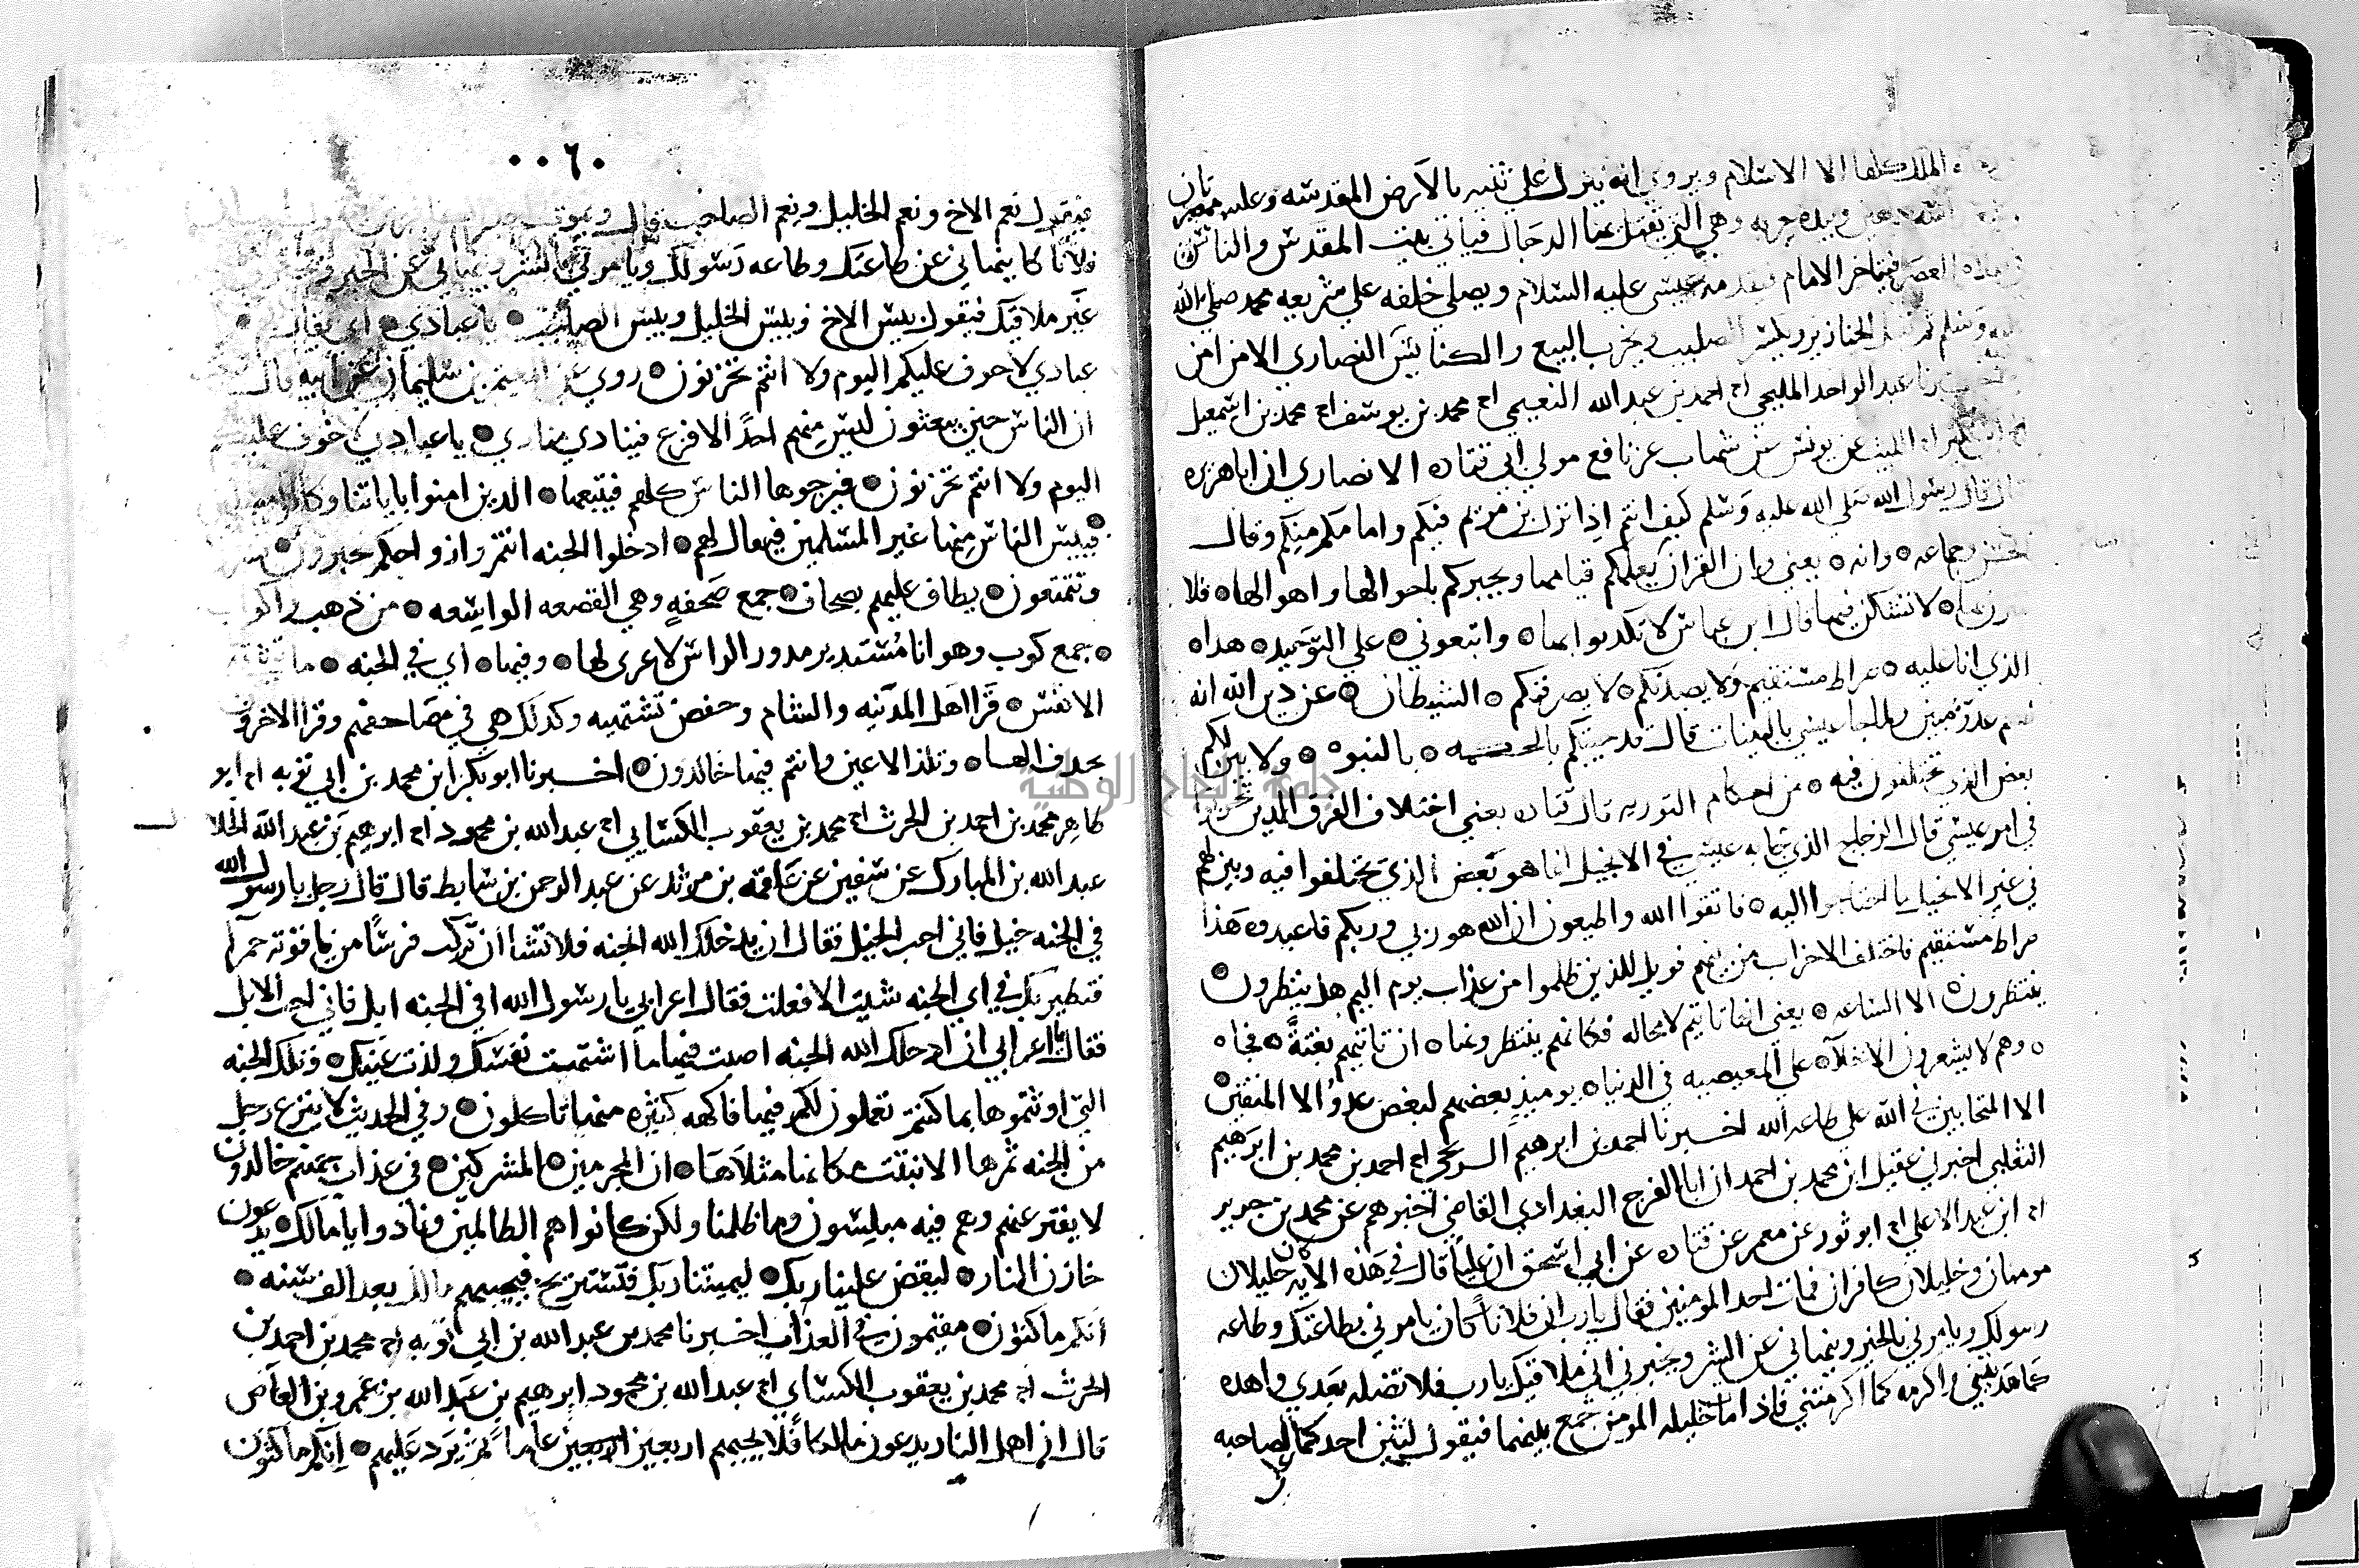 الملل كلها الا الاسلام ويروي انه ينزل علي ثنيه بالارض المقدسه وعليه ممصرتان
وبيده حربه وهي التي يقتل بها الدجال فياتي بيت المقدس والناس
العصر فيتاخر الامام فيقدمه عيسي عليه السلام ويصلي خلفه علي شريعه محمد صلي الله
وسلم ثم يقتل الخنازير ويكسر الصليب ويخرب البيع والكنايس النصاري الا من امن
عبد الواحد المليحي اح احمد بن عبد الله النعيمي اح محمد بن يوسف اح محمد بن اسمعيل
عن يونس بن شهاب عن نافع مولي ابي قتاده الانصاري ان ابا هريره
قال قال رسول الله صلي الله عليه وسلم كيف انتم اذا نزل بن مريم فيكم وامامكم منكم وقال
وجماعه وانه يعني وان القران يعلمكم قيامها ويخبركم باحوالها واهوالها فلا
لا تشكن فيها قال ابن عباس لا تكذبوا بها واتبعوني علي التوحيد هذا
الذي انا عليه صراط مستقيم ولا يصدنكم لا يصرفنكم الشيطان عن دين الله انه
لكم عدو مبين ولما جا عيسي بالبينات قال قد جيتكم بالحكمه بالنبوه ولابين لكم
بعض الذي تختلفون فيه من احكام التوريه قال قتاده يعني اختلاف الفرق الذين تحزبوا
في امر عيسي قال الزجاج الذي جا به عيسي في الانجيل انما هو بعض الذي يختلفوا فيه وبين لهم
في غير الانجيل ما احتاجوا اليه فاتقوا الله واطيعون ان الله هو ربي وربكم فاعبدوه هذا
صراط مستقيم فاختلف الاحزاب من بينهم فويل للذين ظلموا من عذاب يوم اليم هل ينظرون
ينتظرون الا الساعه يعني انها تاتيهم لا محاله فكانهم ينتظرونها ان تاتيهم بغتة فجاه
وهم لا يشعرون الاخلا علي المعصيه في الدنيا يوميذ بعضهم لبعض عدو الا المتقين
الا المتحابين في الله علي طاعه الله اخبرنا احمد بن ابرهيم الشريحي اح احمد بن محمد بن ابرهيم
الثعلبي اخبرني عقيل ابن محمد بن احمد ان ابا الفرج البغدادي القاضي اخبرهم عن محمد بن جرير
اح ابن عبد الاعلي اح ابو ثور عن معمر عن قتاده عن ابي اسحق ان عليا قال في هذه الايه كان خليلان
مومنان وخليلان كافران فمات احد المومنين فقال يارب ان فلانا كان يامرني بطاعتك وطاعه
رسولك ويامرني بالخير وينهاني عن الشر ويخبرني اني ملاقيك يارب فلا تضله بعدي واهده
كما هديتني واكرمه كما اكرمتني فاذا مات خليله المومن جمع بينهما فيقول ليثن احدكما علي صاحبه
٠٠٦٠
فيقول نعم الاخ ونعم الخليل ونعم الصاحب قال ويموت
فلانا كان ينهاني عن طاعتك وطاعه رسولك ويامرني بالشر وينهاني عن الخير
غير ملاقيك فيقول بيس الاخ وبيس الخليل وبيس الصاحب ياعبادي اي يقال
عبادي لا خوف عليكم اليوم ولا انتم تحزنون روي عن المعتمر بن سليمان عن ابيه قال
ان الناس حين يبعثون ليس منهم احد الا فزع فينادي مناري يا عبادي لا خوف عليكم
اليوم ولا انتم تحزنون فيرجوها الناس كلهم فيتبعها الذين امنوا باياتنا وكانوا مسلمين
فييس الناس منها غير المسلمين فيقال لهم ادخلوا الجنه انتم وازواجكم تحبرون
وتتمتعون يطاف عليهم بصحاف جمع صحفه وهي القصعه الواسعه من ذهب واكواب
جمع كوب وهو انا مستدير مدور الراس لا عري لها وفيها اي في الجنه ما تشتهيه
الانفس قرا اهل المدينه والشام وحفص تشتهيه وكذلك هي في مصاحفهم وقرا الاخرون
بحذف الها وتلذ الاعين وانتم فيها خالدون اخبرنا ابو بكر ابن محمد بن ابي توبه اح ابو
طاهر محمد بن احمد بن الحرث اح محمد بن يعقوب الكسايي اح عبد الله بن محمود اح ابرهيم بن عبد الله الخلا
عبد الله بن المبارك عن سفين عن علقمه بن مرثد عن عبد الرحمن بن سابط قال قال رجل يا رسول الله
في الجنه خيل فاني احب الخيل فقال ان يدخلك الله الجنه فلا تشا ان تركب فرسا من ياقوته حمرا
فتطير بك في اي الجنه شيت الا فعلت فقال اعرابي يا رسول الله افي الجنه ابل فاني احب الابل
فقال يا اعرابي ان ادخلك الله الجنه اصبت فيها ما اشتهت نفسك ولذت عينك وتلك الجنه
التي اورثتموها بما كنتم تعملون لكم فيها فاكهه كثيره منها تاكلون وفي الحديث لا ينزع رجل
من الجنه ثمرها الا نبتت مكانها مثلاها ان المجرمين المشركين في عذاب جهنم خالدون
لا يفتر عنهم وهم فيه مبلسون وما ظلمنا ولكن كانوا هم الظالمين ونادوا يا مالك يدعون
خازن النار ليقض علينا ربك ليميتنا ربك فنستريح فيجيبهم مالك بعد الف سنه
انكم ماكثون مقيمون في العذاب اخبرنا محمد بن عبد الله بن ابي توبه اح محمد بن احمد بن
الحرث اح محمد بن يعقوب الكساي اح عبد الله بن محمود ابرهيم بن عبد الله بن عمرو بن العاص
قال ان اهل النار يدعون مالكا فلا يجيبهم اربعين عاما ثم يرد عليهم انكم ماكثون
جامعة النجاح الوطنية